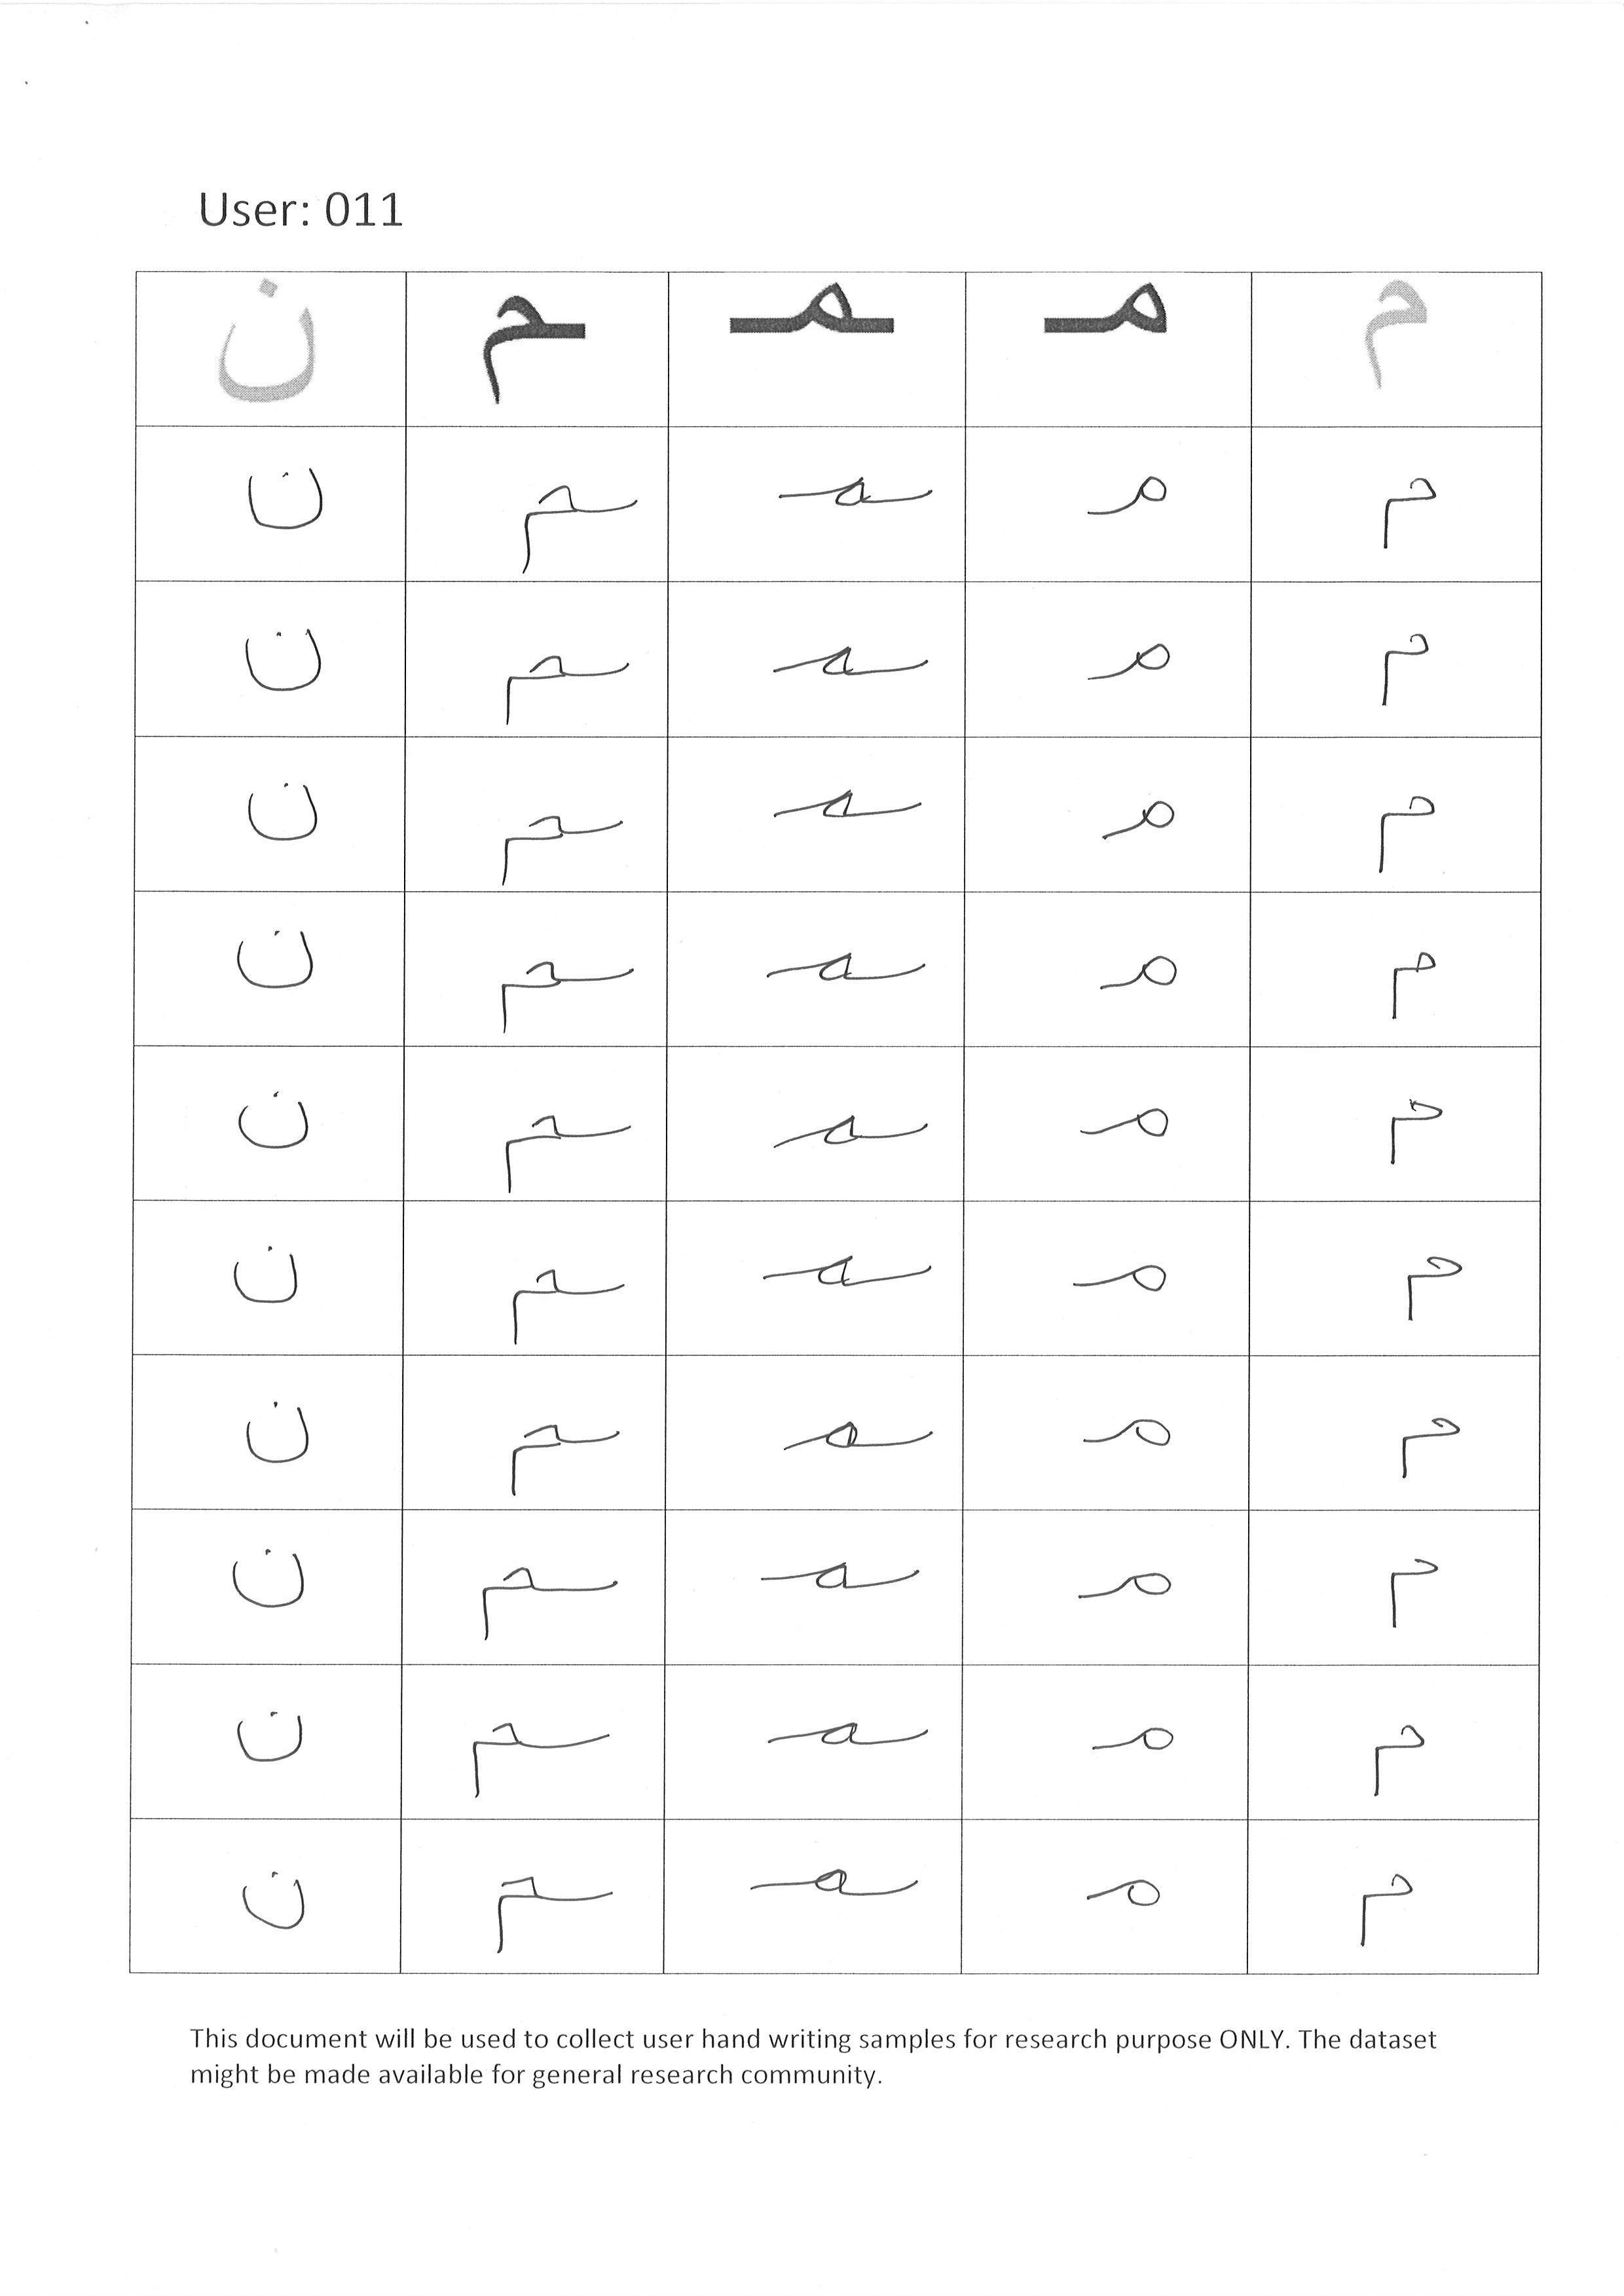 User: 011
م مـ ـمـ ـم ن
م مـ ـمـ ـم ن
م مـ ـمـ ـم ن
م مـ ـمـ ـم ن
م مـ ـمـ ـم ن
م مـ ـمـ ـم ن
م مـ ـمـ ـم ن
م مـ ـمـ ـم ن
م مـ ـمـ ـم ن
م مـ ـمـ ـم ن
م مـ ـمـ ـم ن
This document will be used to collect user hand writing samples for research purpose ONLY. The dataset
might be made available for general research community.